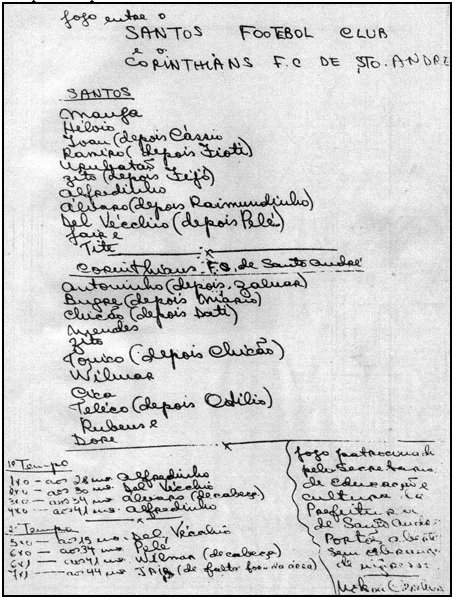 Jogo entre o
SANTOS FOOTEBOL CLUB
e o
CORINTHIANS F.C DE STO. ANDRE
SANTOS
Manga
Hélvio
Ivan (depois Cássio
Ramiro (depois Fioti)
Urubatão
Zito (depois Feijó)
Alfredinho
Álvaro (depois Raimundinho)
Del Vécchio (depois Pelé)
Jair e
Tite
Corinthians F.C. de Santo André
Antoninho (depois Zaluar)
Bugre (depois Mário)
Chicão (depois Dati)
Mendes
Zito
Tonico (depois Chicão)
Wilmar
Cica
Teléco (depois Cotilio)
Rubens e
Dore
1º Tempo
1x0 — aos 28 ms. Alfredinho
2x0 — aos 30 ms. Del Vécchio
3x0 — aos 34 ms. Álvaro (de cabeça)
4x0 — aos 41 ms. Alfredinho
2º Tempo
5x0 — aos 15 ms. Del Vécchio
6x0 — aos 34 ms. Pelé
6x1 — aos 41 ms. Wilmar (de cabeça)
7x1 — aos 44 ms. JAIR (de falta fora da área)
Jogo patrocinado
pela Secretaria
de educação e
cultura da
Prefeitura
de Santo André
Portões abertos
sem cobrança
de ingresso